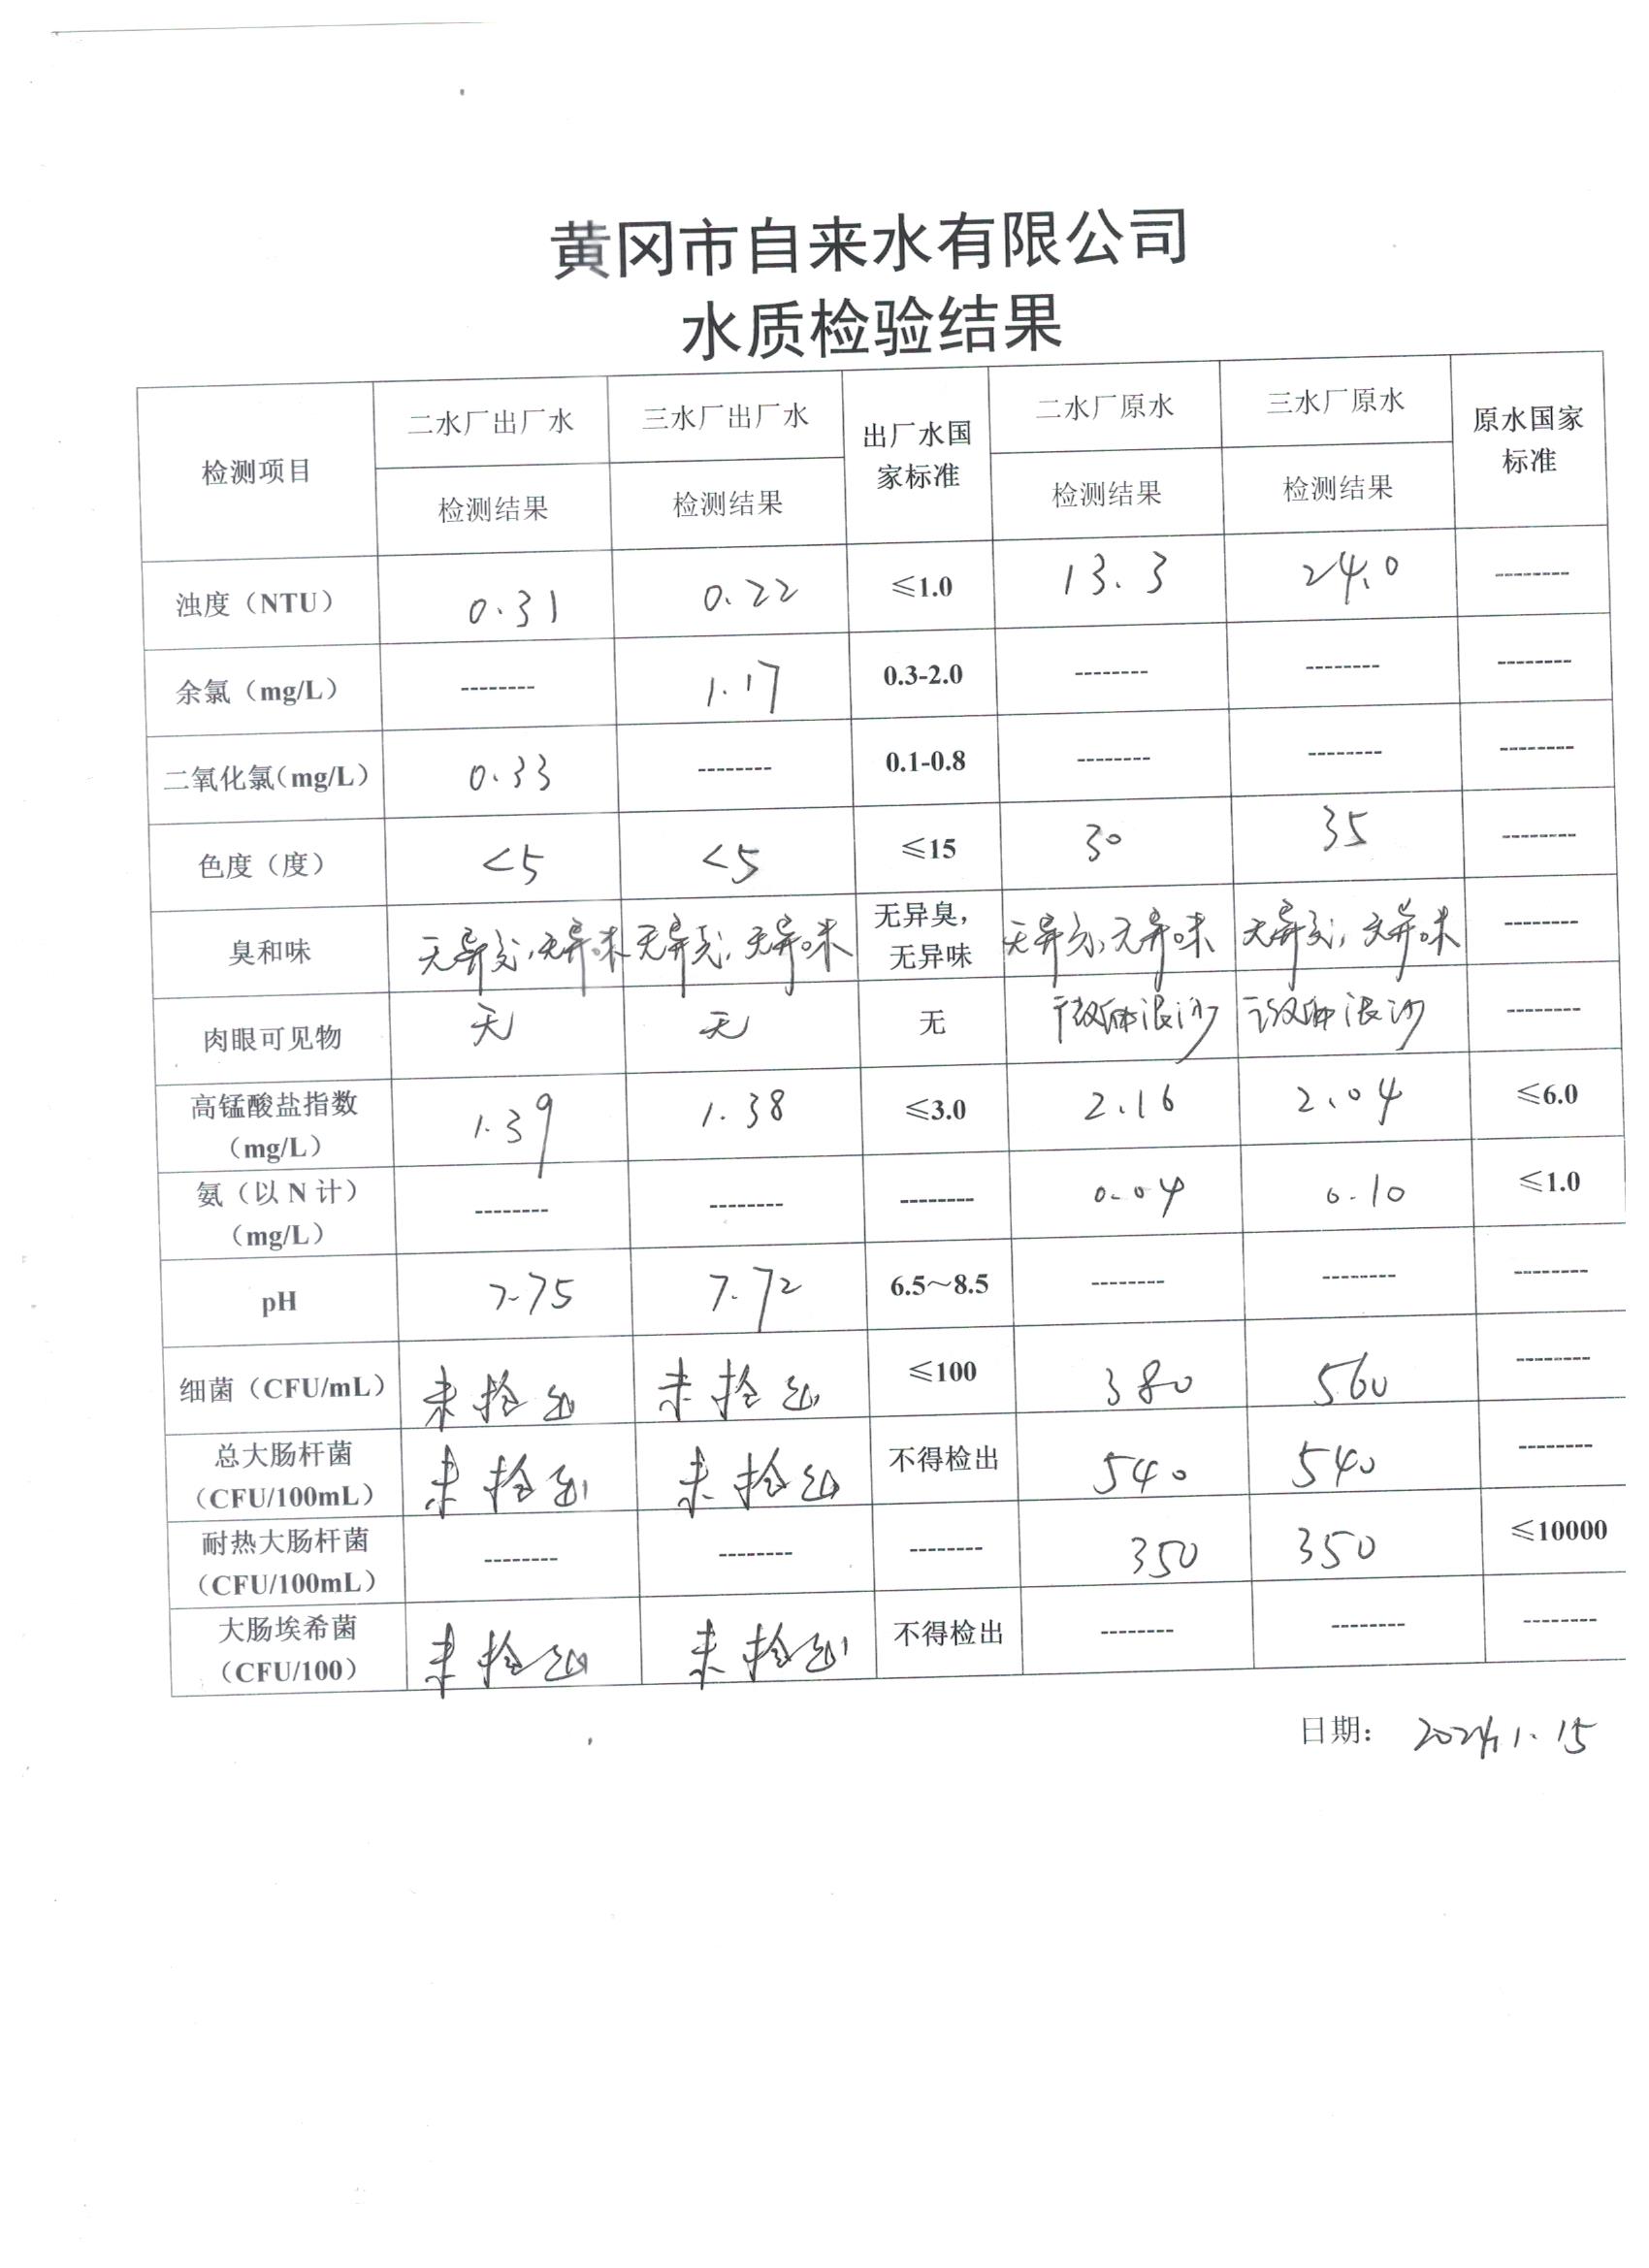 黄冈市自来水有限公司
水质检验结果
检测项目 二水厂出厂水 三水厂出厂水 出厂水国家标准 二水厂原水 三水厂原水 原水国家标准
检测结果 检测结果 检测结果 检测结果
浊度（NTU） 0.31 0.22 ≤1.0 13.3 24.0 --------
余氯（mg/L） -------- 1.17 0.3-2.0 -------- -------- --------
二氧化氯（mg/L） 0.33 -------- 0.1-0.8 -------- -------- --------
色度（度） <5 <5 ≤15 30 35 --------
臭和味 无异臭,无异味 无异臭,无异味 无异臭，无异味 无异臭,无异味 无异臭,无异味 --------
肉眼可见物 无 无 无 --------
高锰酸盐指数（mg/L） 1.39 1.38 ≤3.0 2.16 2.04 ≤6.0
氨（以N计）（mg/L） -------- -------- -------- 0.04 0.10 ≤1.0
pH 7.75 7.72 6.5～8.5 -------- -------- --------
细菌（CFU/mL） 未检出 未检出 ≤100 380 560 --------
总大肠杆菌（CFU/100mL） 未检出 未检出 不得检出 540 540 --------
耐热大肠杆菌（CFU/100mL） -------- -------- -------- 350 350 ≤10000
大肠埃希菌（CFU/100） 未检出 未检出 不得检出 -------- -------- --------
日期： 2024.1.15